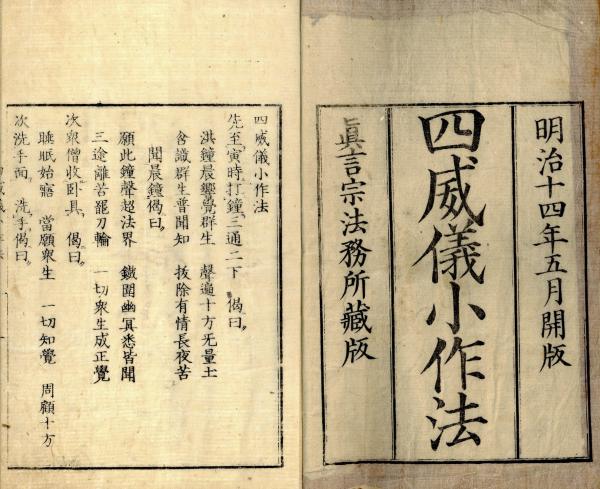 明治十四年五月開版
四威儀小作法
眞言宗法務所藏版
四威儀小作法
先至寅時打鐘三通二下 偈曰
洪鐘晨響覺群生 聲遍十方无量土
含識群生普聞知 拔除有情長夜苦
聞晨鐘偈曰
願此鐘聲超法界 鐵圍幽冥悉皆聞
三途離苦罷刀輪 一切衆生成正覺
次衆僧收卧具 偈曰
睡眠始寤 當願衆生 一切知覺 周顧十方
次洗手面 洗手偈曰